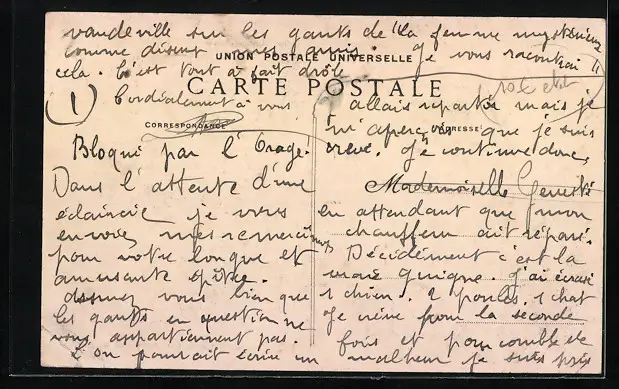 vaudeville sur les gants de "la femme mystérieuse"
comme disent mes amis. Je vous raconterai
UNION POSTALE UNIVERSELLE
cela. C'est tout à fait drôle
CARTE POSTALE
Cordialement à vous
1
CORRESPONDANCE
ADRESSE
Bloqué par l'Orage!
Dans l'attente d'une
éclaircie je vous
envoie mes remerciements
pour votre longue et
amusante épître.
vous bien que
les gants en question ne
vous appartiennent pas.
on pourrait écrire un
allais repartir mais je
m'aperçois que je suis
crevé. Je continue donc,
Mademoiselle
en attendant que mon
chauffeur ait réparé.
Décidément c'est la
vraie guigne. J'ai écrasé
1 chien. 2 poules. 1 chat
Je crève pour la seconde
fois et pour comble de
malheur je suis pris